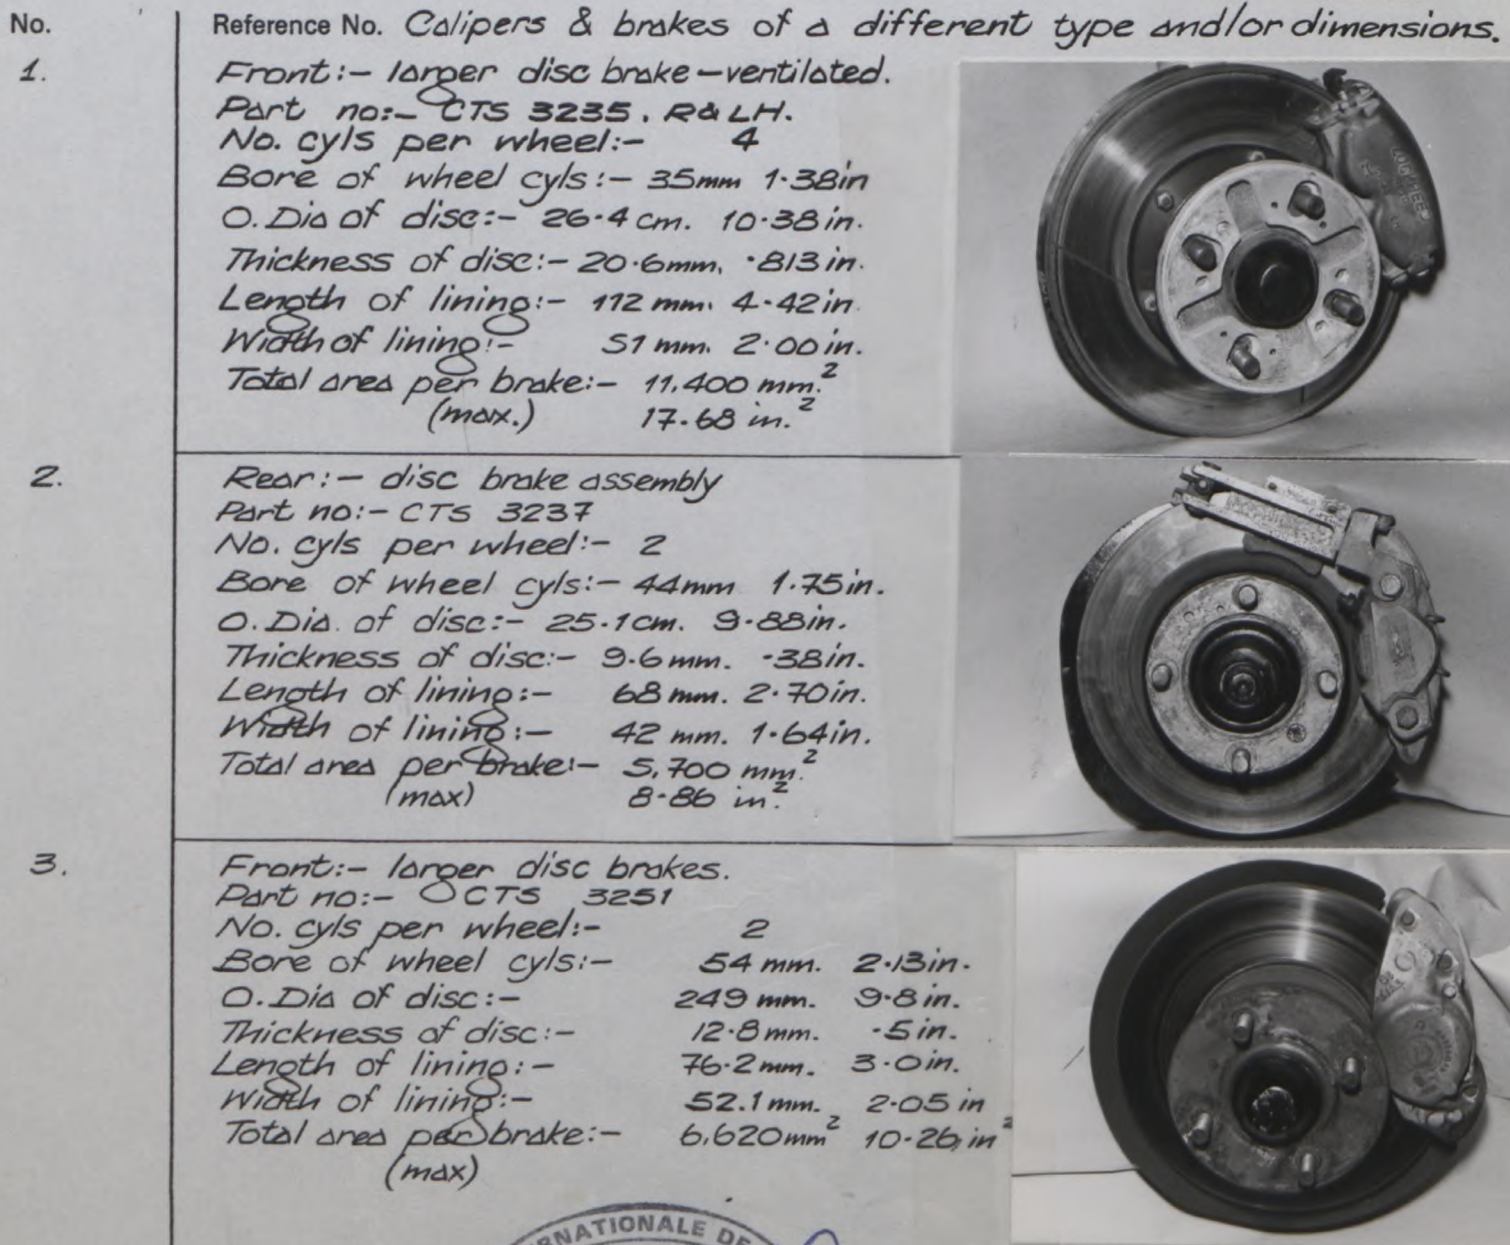 No. Reference No. Calipers & brakes of a different type and/or dimensions.
1. Front:- larger disc brake-ventilated.
Part no:- CTS 3235. R&LH.
No. cyls per wheel:- 4
Bore of wheel cyls:- 35mm 1·38in
O. Dia of disc:- 26·4 cm. 10·38 in.
Thickness of disc:- 20·6mm. ·813 in.
Length of lining:- 112 mm. 4·42in.
Width of lining:- 51 mm. 2·00in.
Total area per brake:- 11,400 mm.²
(max.) 17·68 in.²
LOCKHEED
2. Rear:- disc brake assembly
Part no:- CTS 3237
No. cyls per wheel:- 2
Bore of wheel cyls:- 44mm 1·75in.
O. Dia. of disc:- 25·1cm. 9·88in.
Thickness of disc:- 9·6mm. ·38in.
Length of lining:- 68 mm. 2·70in.
Width of lining:- 42 mm. 1·64in.
Total area per brake:- 5,700 mm.²
(max) 8·86 in.²
3. Front:- larger disc brakes.
Part no:- CTS 3251
No. cyls per wheel:- 2
Bore of wheel cyls:- 54 mm. 2·13in.
O. Dia of disc:- 249 mm. 9·8 in.
Thickness of disc:- 12·8mm. ·5in.
Length of lining:- 76·2mm. 3·0in.
Width of lining:- 52.1mm. 2·05 in
Total area per brake:- 6,620mm² 10·26 in²
(max)
RNATIONALE DE